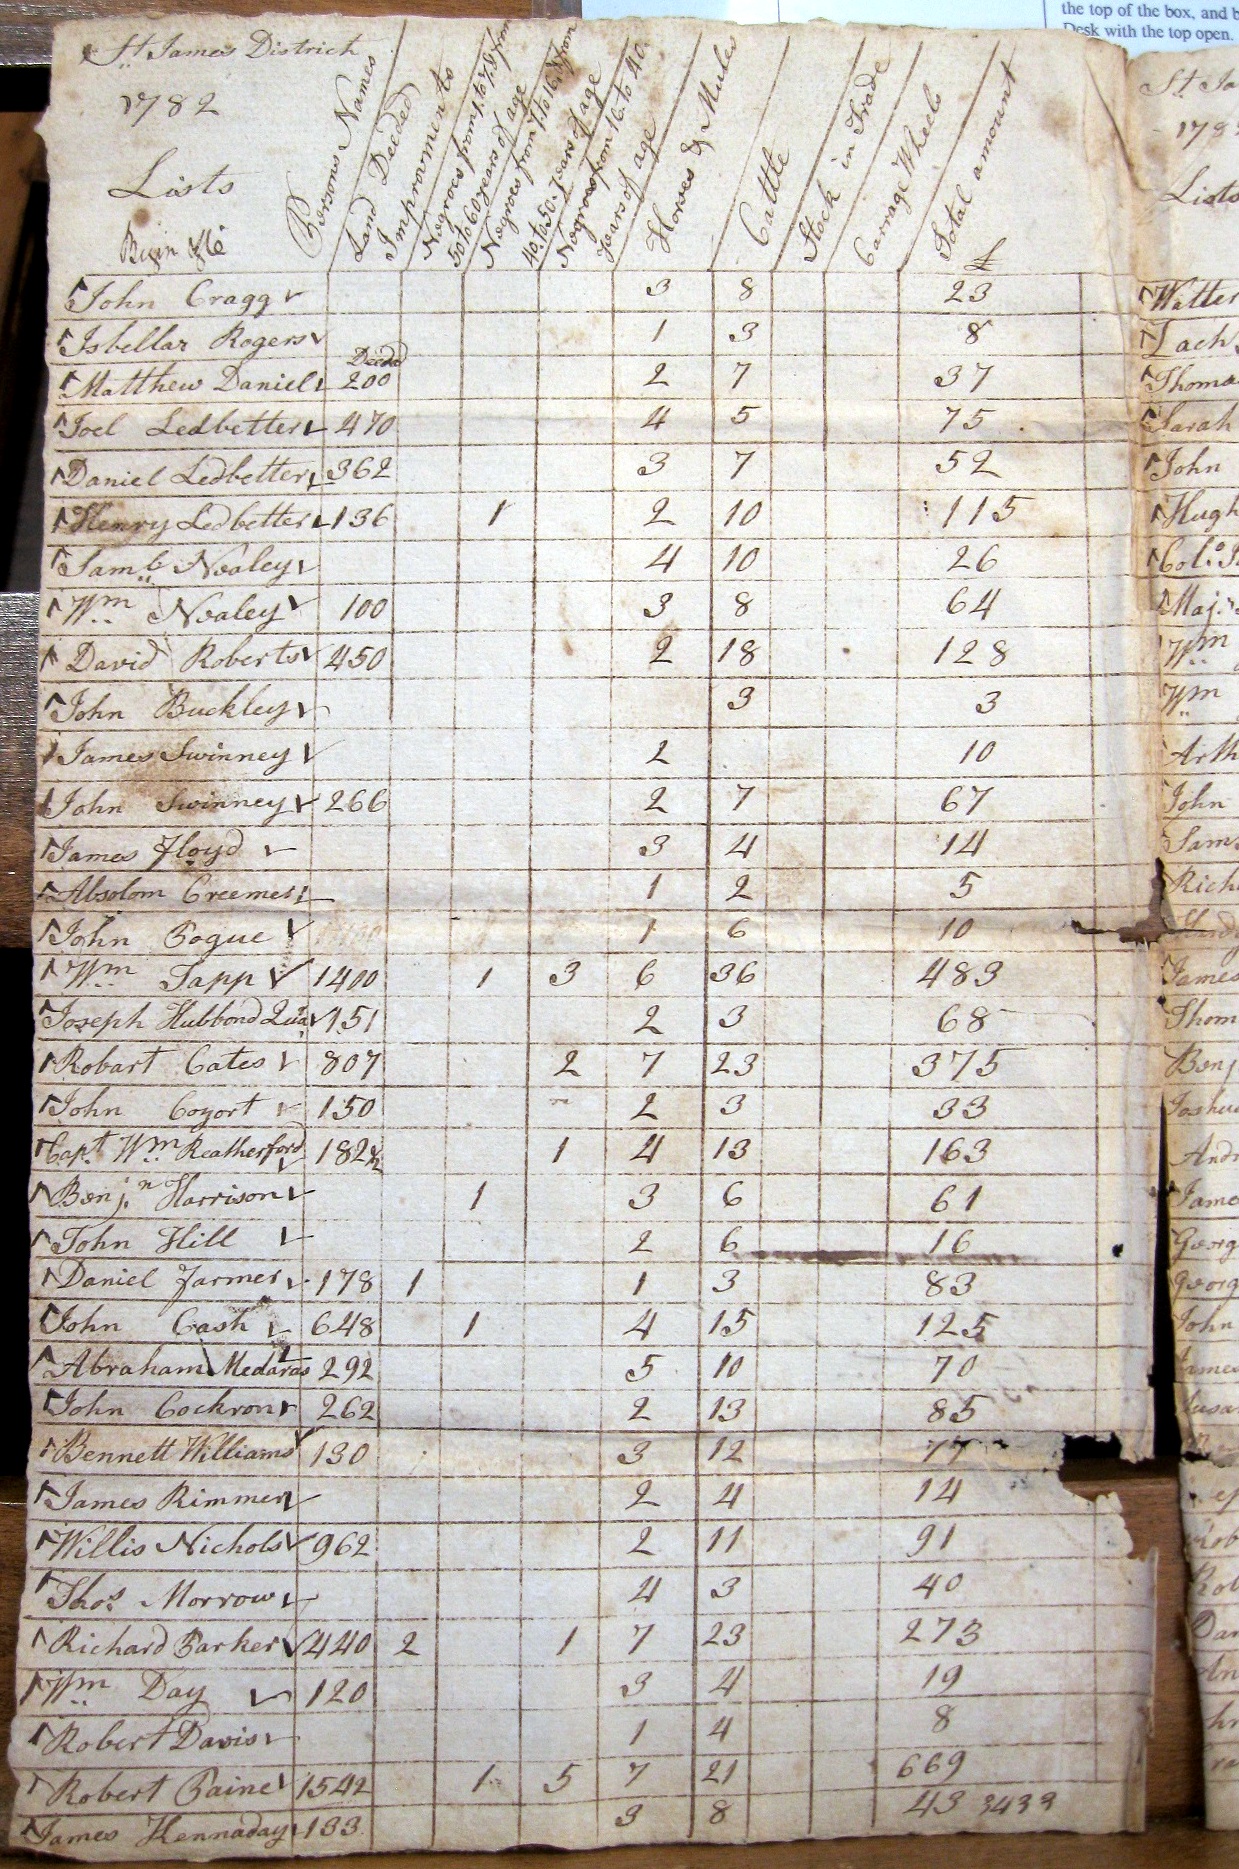 the top of the box, and b
Desk with the top open.
St. James District
1782
Lists
Persons Names
Land Deeded
Improvments
Negroes from 1 to 7 & from 50 to 60 years of age
Negroes from 7 to 16 & from 40 to 50 years of age
Negroes from 16 to 40 years of age
Horses & Mules
Cattle
Stock in Trade
Carrage Wheels
Total amount
John Cragg 3 8 23
Isbellar Rogers 1 3 8
Deeded
Matthew Daniel 200 2 7 37
Joel Ledbetter 470 4 5 75
Daniel Ledbetter 362 3 7 52
Henry Ledbetter 136 1 2 10 115
Saml. Nealey 4 10 26
Wm. Nealey 100 3 8 64
David Roberts 450 2 18 128
John Buckley 3 3
James Swinney 2 10
John Swinney 266 2 7 67
James Floyd 3 4 14
Absolom Creemer 1 2 5
John Pogue 1 6 10
Wm. Sapp 1400 1 3 6 36 483
Joseph Hubbond 151 2 3 68
Robart Cates 807 2 7 23 375
John Coyort 150 2 3 33
Capt. Wm. Reatherford 182½ 1 4 13 163
Benjn. Harrison 1 3 6 61
John Hill 2 6 16
Daniel Farmer 178 1 1 3 83
John Cash 648 1 4 15 125
Abraham Medaras 292 5 10 70
John Cockron 262 2 13 85
Bennett Williams 130 3 12 77
James Rimmer 2 4 14
Willis Nichols 962 2 11 91
Thos. Morrow 4 3 40
Richard Barker 440 2 1 7 23 273
Wm. Day 120 3 4 19
Robert Davis 1 4 8
Robert Paine 1542 1 5 7 21 669
James Kennaday 133 3 8 43 3433
St. Ja
178
Lists
Walter
Zach
Thoma
Sarah
John
Hugh
Col.
Maj.
Wm.
Wm.
Arth
John
Sam
Rich
James
Thom
Benj
Joshua
Andr
James
Georg
Georg
John
James
Susa
Rob
Dan